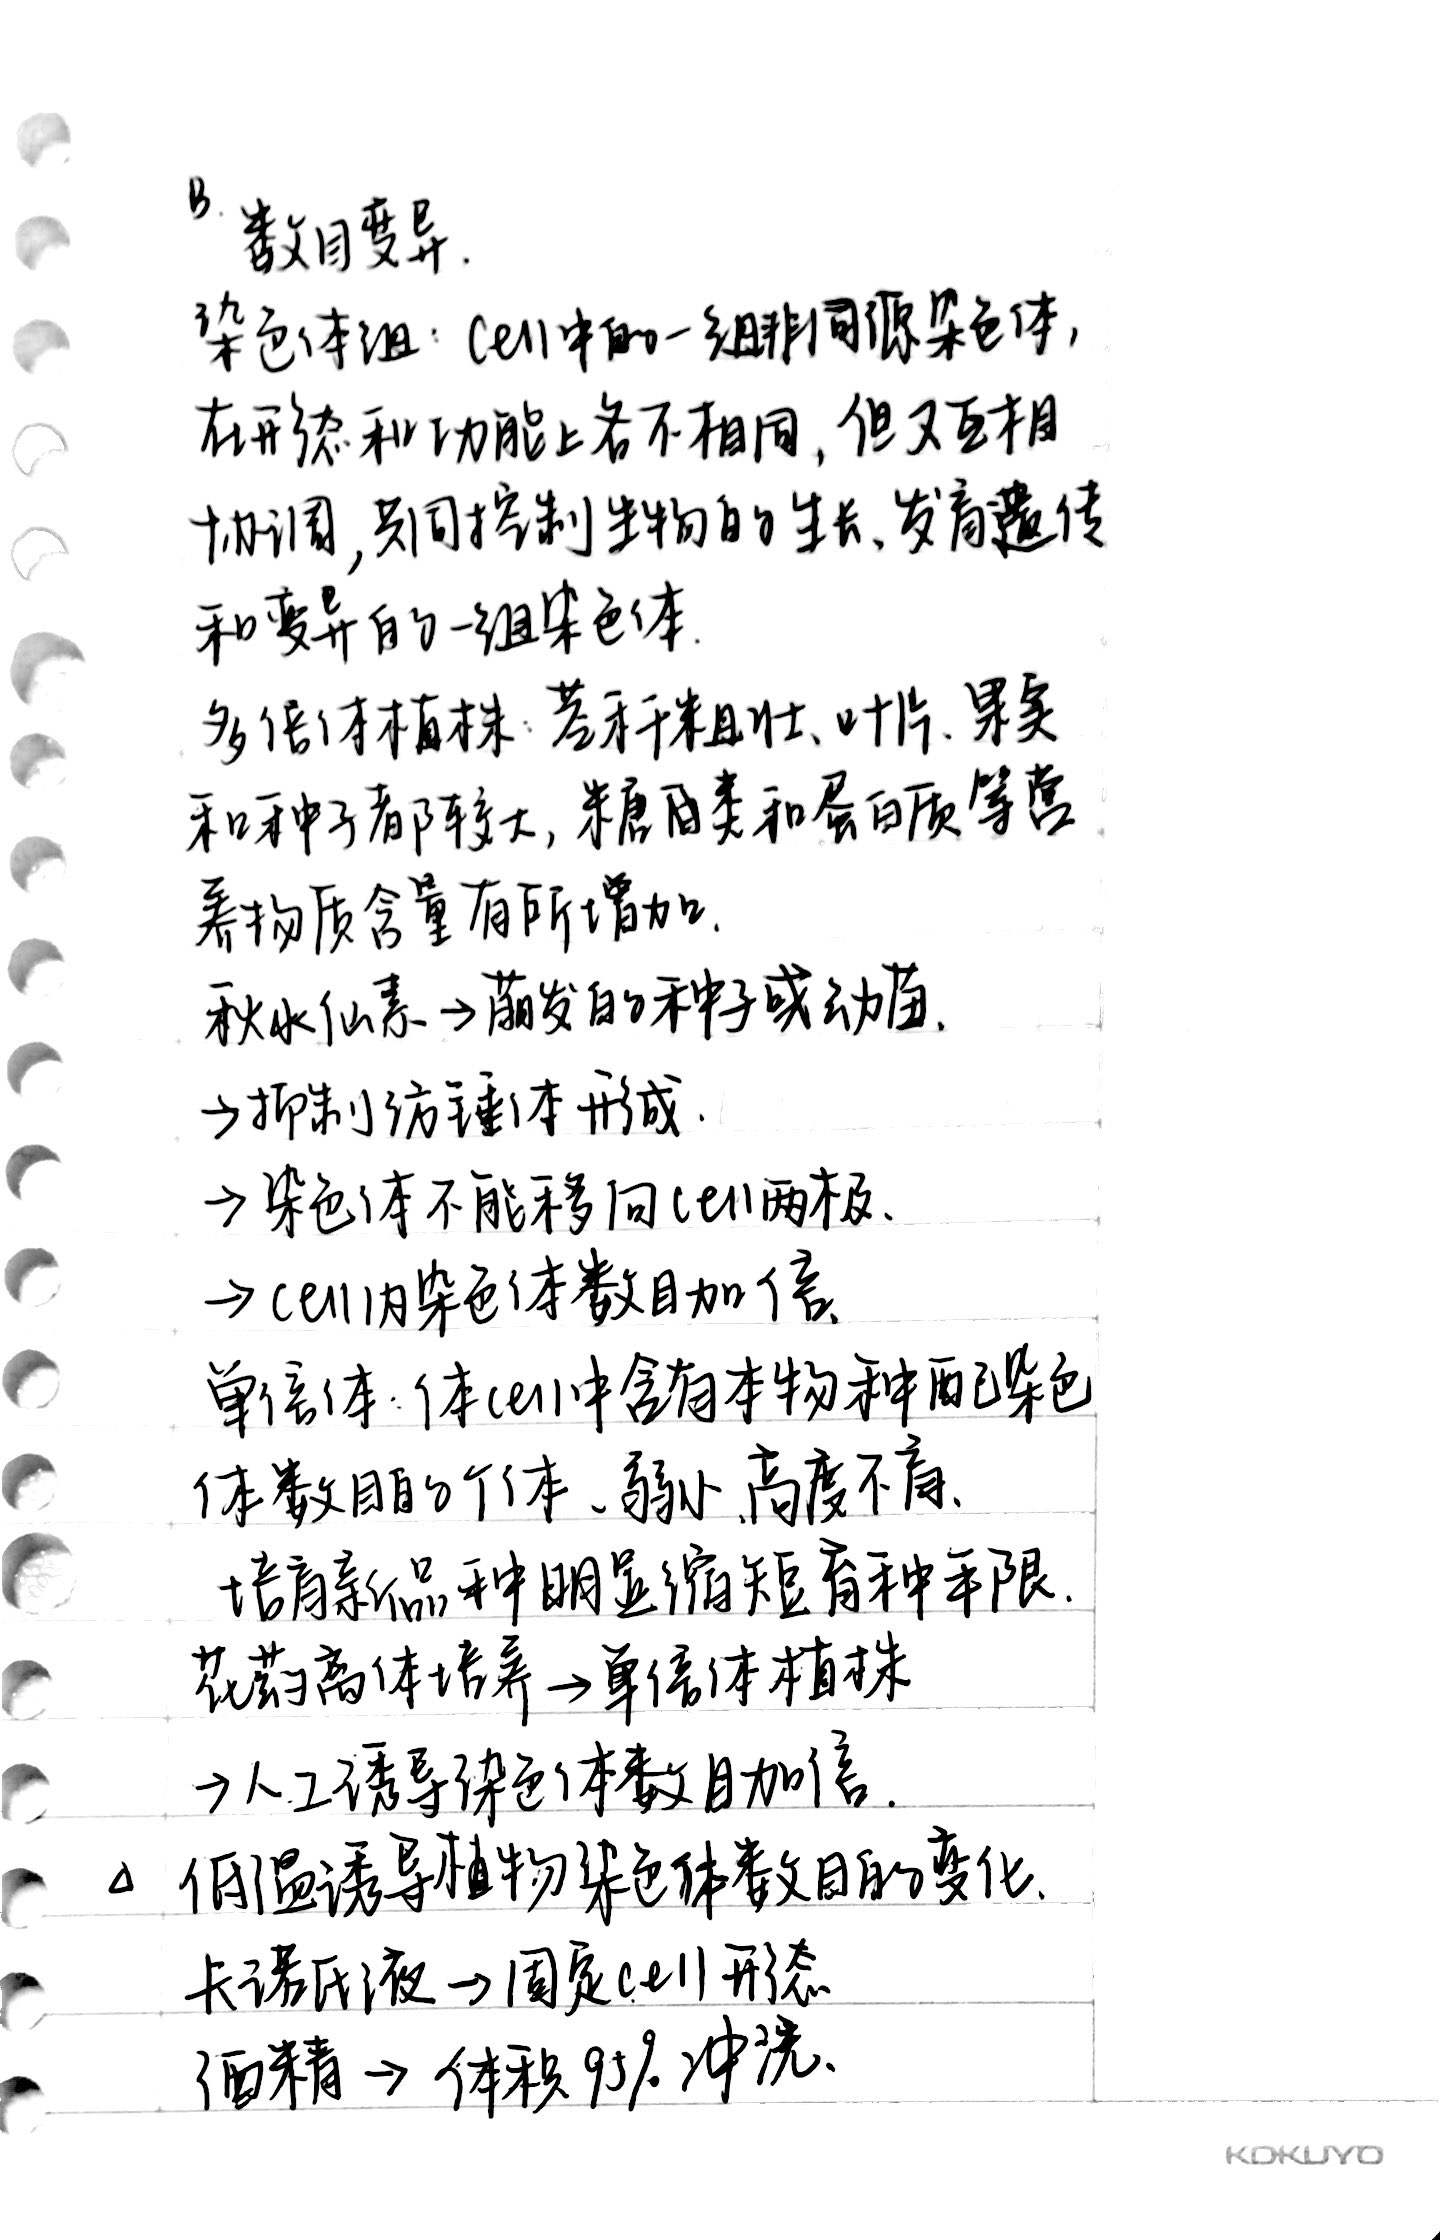 B.
数目变异.
染色体组: Cell中的一组非同源染色体,
在形态和功能上各不相同, 但又互相
协调, 共同控制生物的生长、发育遗传
和变异的一组染色体.
多倍体植株: 茎秆粗壮、叶片、果实
和种子都较大, 糖类和蛋白质等营
养物质含量有所增加.
秋水仙素→萌发的种子或幼苗.
→抑制纺锤体形成.
→染色体不能移向cell两极.
→cell内染色体数目加倍.
单倍体: 体cell中含有本物种配已染色
体数目的个体、弱小、高度不育、
培育新品种明显缩短育种年限.
花药离体培养→单倍体植株
→人工诱导染色体数目加倍.
△ 低温诱导植物染色体数目的变化、
卡诺氏液→固定cell形态
酒精→体积95%冲洗、
KOKUYO